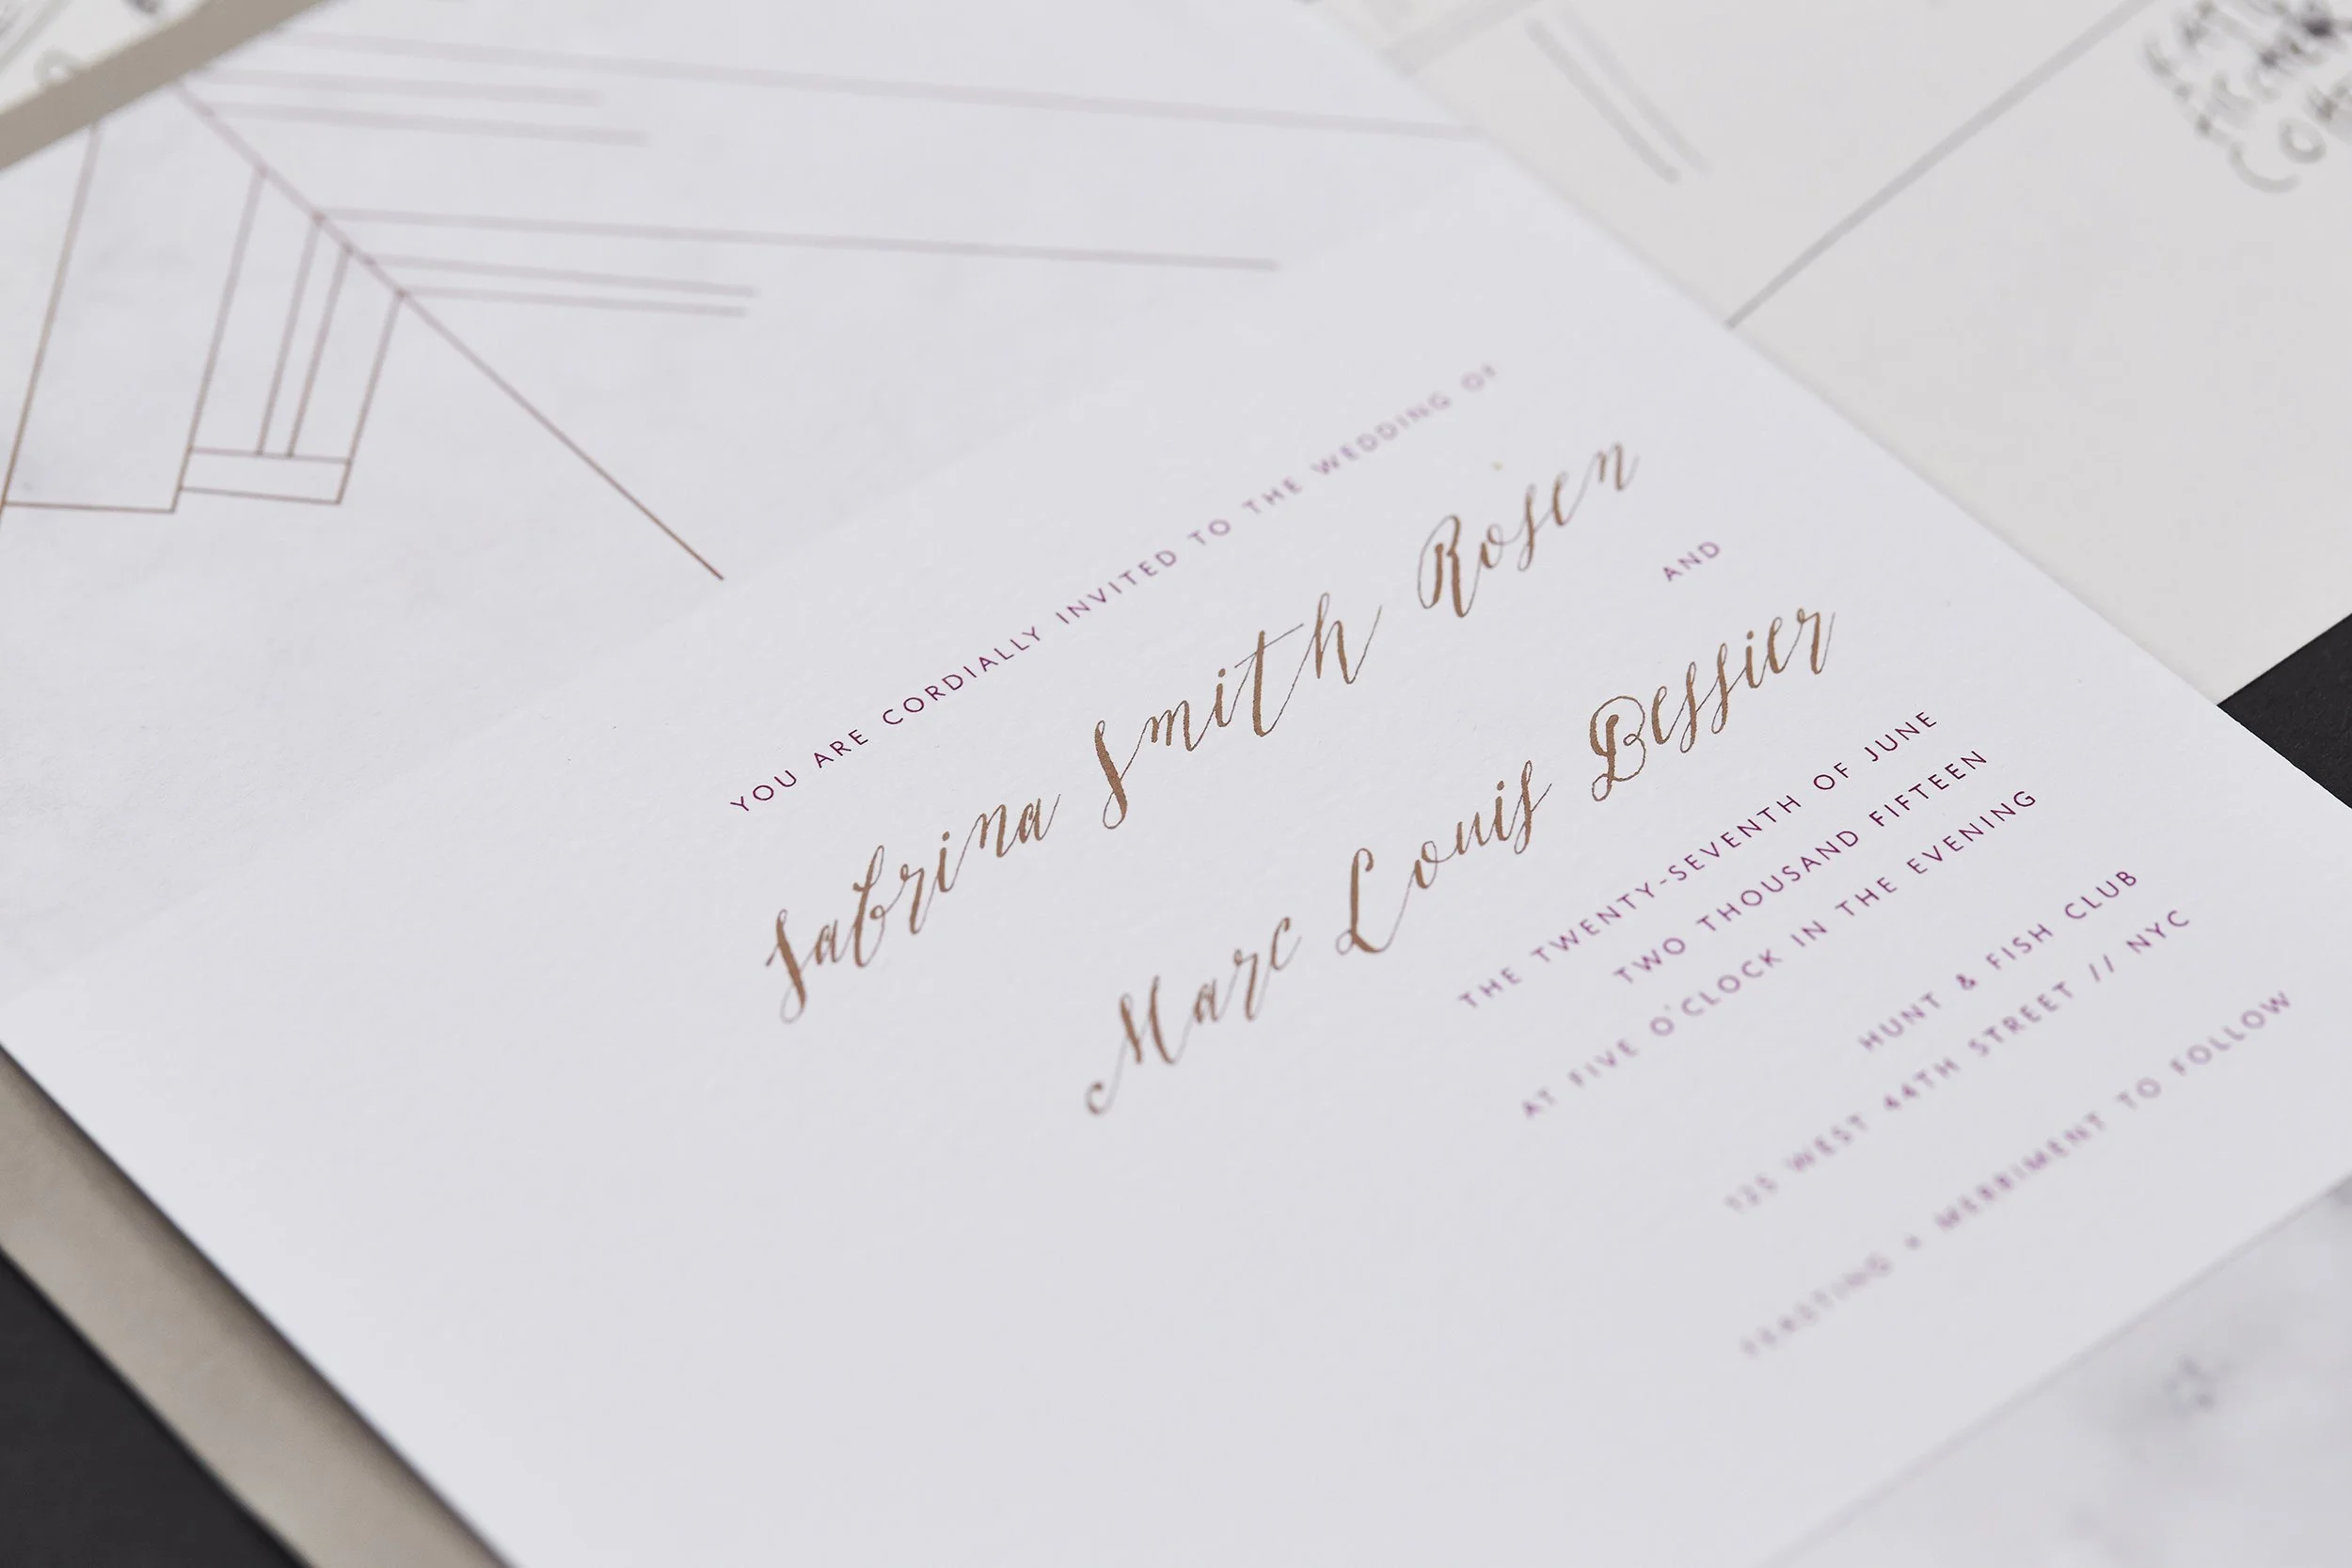 YOU ARE CORDIALLY INVITED TO THE WEDDING OF
Sabrina Smith Rosen
AND
Marc Louis Bessier
THE TWENTY-SEVENTH OF JUNE
TWO THOUSAND FIFTEEN
AT FIVE O'CLOCK IN THE EVENING
HUNT & FISH CLUB
125 WEST 44TH STREET // NYC
FEASTING + MERRIMENT TO FOLLOW